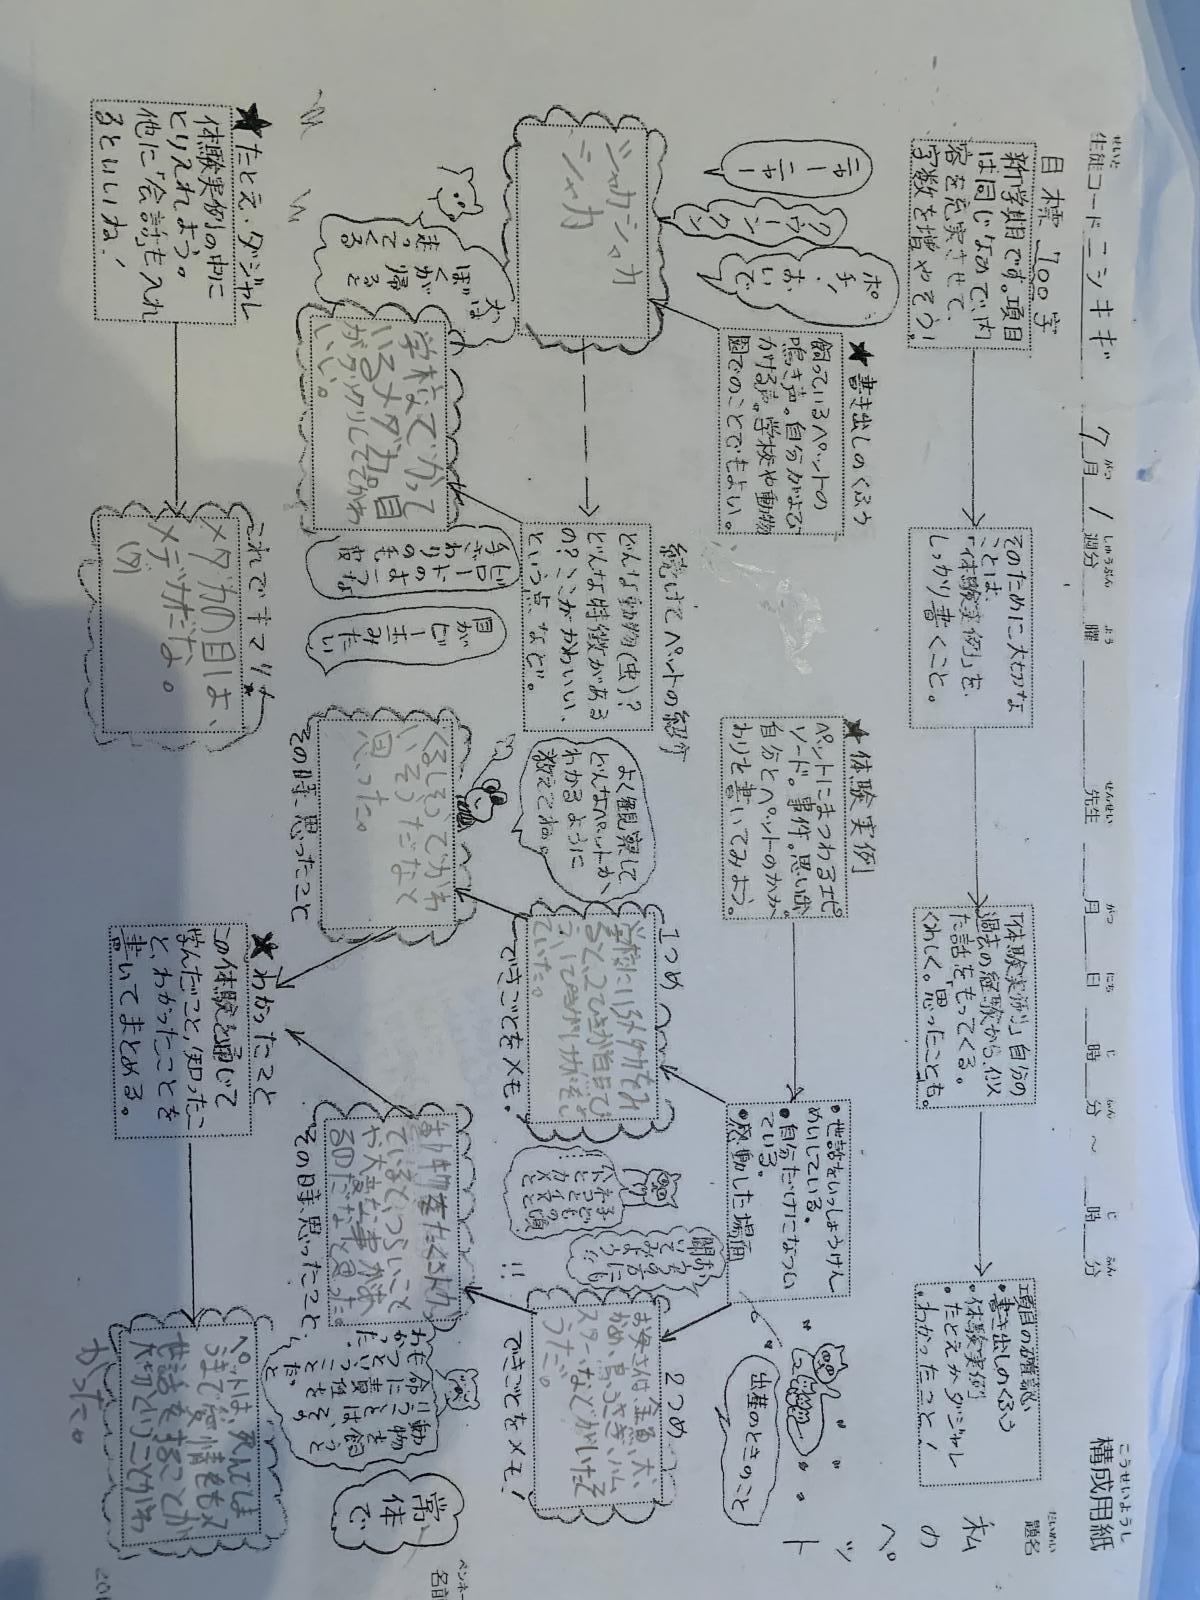 構成用紙
こうせいようし
題名
だいめい
私のペット
生徒コード ニシキギ
せいと
7月 1週分 曜 先生 月 日 時 分 ~ 時 分
目標 700字
新学期です。項目
は同じなので、内
容を充実させて、
字数を増やそう!
そのために大切な
ことは、
「体験実例」を
しっかり書くこと。
「体験実例」自分の
過去の経験から、似
た話をもってくる。
くわしく。「思ったことも。
項目の確認
・書き出しのくふう
・体験実例
・たとえかダジャレ
・わかったこと!
★書き出しのくふう
飼っているペットの
鳴き声。自分がよび
かける声。学校や動物
園でのことでもよい。
ニャーニャー
クウーンクン
ポチ、おいで
ジャカシャカ
シャカ
続けてペットの紹介
どんな動物(虫)?
どんな特徴がある
の?ここがかわいい、
という点など。
よく観察して
どんなペットか、
わかるように
教えてね。
学校でかって
いるメダカ。目
がクリクリしててかわ
いい。
ぼくが帰ると
走ってくる
ビロードのような
手ざわりの毛皮
目がビー玉みたい
★体験実例
ペットにまつわるエピ
ソード。事件。思い出。
自分とペットのかか
わりを書いてみよう。
・世話をいっしょうけん
めいしている。
・自分だけになつい
ている。
・感動した場面
出産のときのこと
1つめ
学校にいるメダカをみ
ていた。
できごとをメモ。
くるしそうでかわ
いそうだなと
思った。
その時、思ったこと
2つめ
お母さんは金魚、犬、
かめ、鳥、うさぎ、ハム
スターなどがいたそ
うだ。
できごとをメモ!
動物をたくさんかっ
ていほど、つらいこと
や大変な事があ
るのだなと思った。
その時、思ったこと
★わかったこと
この体験を通じて
学んだこと、知ったこ
と、わかったことを
書いてまとめる。
常体で
ペットは、死んでしま
うまで愛情をもって
世話をすることが
大切ということがわ
かった。
★たとえ・ダジャレ
体験実例の中に
とりいれよう。
他に「会話」も入れ
るといいね!
これでキマリ★
メダカの目は、
メデカだな。